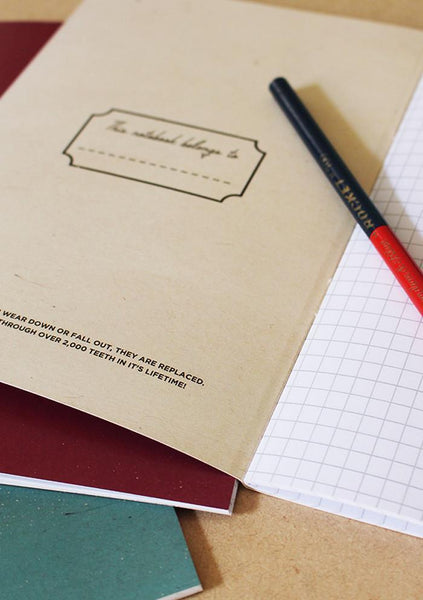 This notebook belongs to
WEAR DOWN OR FALL OUT, THEY ARE REPLACED.
THROUGH OVER 2,000 TEETH IN IT'S LIFETIME!
ROCKET